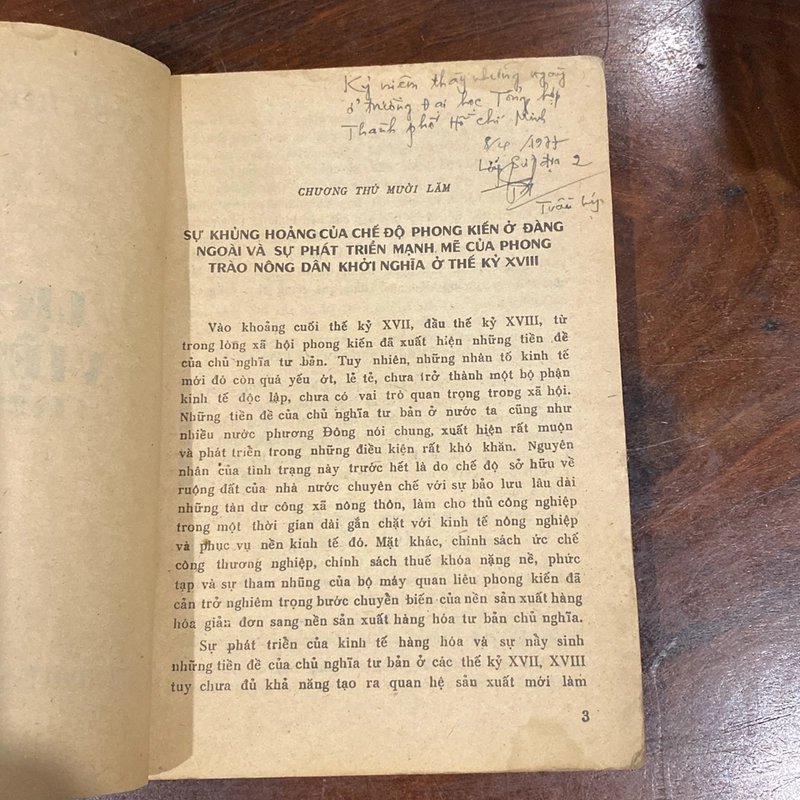 Kỷ niệm tháy những ngày
ở trường Đại học Tổng hợp
Thành phố Hồ Chí Minh
8/4/1977
Lớp Sử Địa 2
Tuấn
CHƯƠNG THỨ MƯỜI LĂM
SỰ KHỦNG HOẢNG CỦA CHẾ ĐỘ PHONG KIẾN Ở ĐÀNG
NGOÀI VÀ SỰ PHÁT TRIỂN MẠNH MẼ CỦA PHONG
TRÀO NÔNG DÂN KHỞI NGHĨA Ở THẾ KỶ XVIII
Vào khoảng cuối thế kỷ XVII, đầu thế kỷ XVIII, từ
trong lòng xã hội phong kiến đã xuất hiện những tiền đề
của chủ nghĩa tư bản. Tuy nhiên, những nhân tố kinh tế
mới đó còn quá yếu ớt, lẻ tẻ, chưa trở thành một bộ phận
kinh tế độc lập, chưa có vai trò quan trọng trong xã hội.
Những tiền đề của chủ nghĩa tư bản ở nước ta cũng như
nhiều nước phương Đông nói chung, xuất hiện rất muộn
và phát triển trong những điều kiện rất khó khăn. Nguyên
nhân của tình trạng này trước hết là do chế độ sở hữu về
ruộng đất của nhà nước chuyên chế với sự bảo lưu lâu dài
những tàn dư công xã nông thôn, làm cho thủ công nghiệp
trong một thời gian dài gắn chặt với kinh tế nông nghiệp
và phục vụ nền kinh tế đó. Mặt khác, chính sách ức chế
công thương nghiệp, chính sách thuế khóa nặng nề, phức
tạp và sự tham nhũng của bộ máy quan liêu phong kiến đã
cản trở nghiêm trọng bước chuyển biến của nền sản xuất hàng
hóa giản đơn sang nền sản xuất hàng hóa tư bản chủ nghĩa.
Sự phát triển của kinh tế hàng hóa và sự nảy sinh
những tiền đề của chủ nghĩa tư bản ở các thế kỷ XVII, XVIII
tuy chưa đủ khả năng tạo ra quan hệ sản xuất mới làm
3